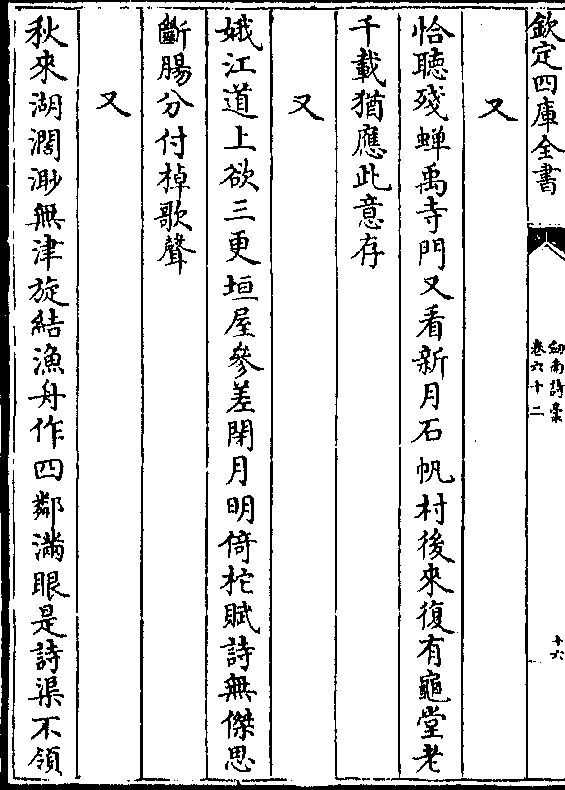 欽定四庫全書
劒南詩稾
卷六十二
十六
又
恰聴殘蝉禹寺門又看新月石帆村後來復有龜堂老
千載猶應此意存
又
娥江道上欲三更垣屋參差閉月明倚柁賦詩無傑思
斷腸分付棹歌聲
又
秋來湖濶渺無津旋結漁舟作四鄰滿眼是詩渠不領